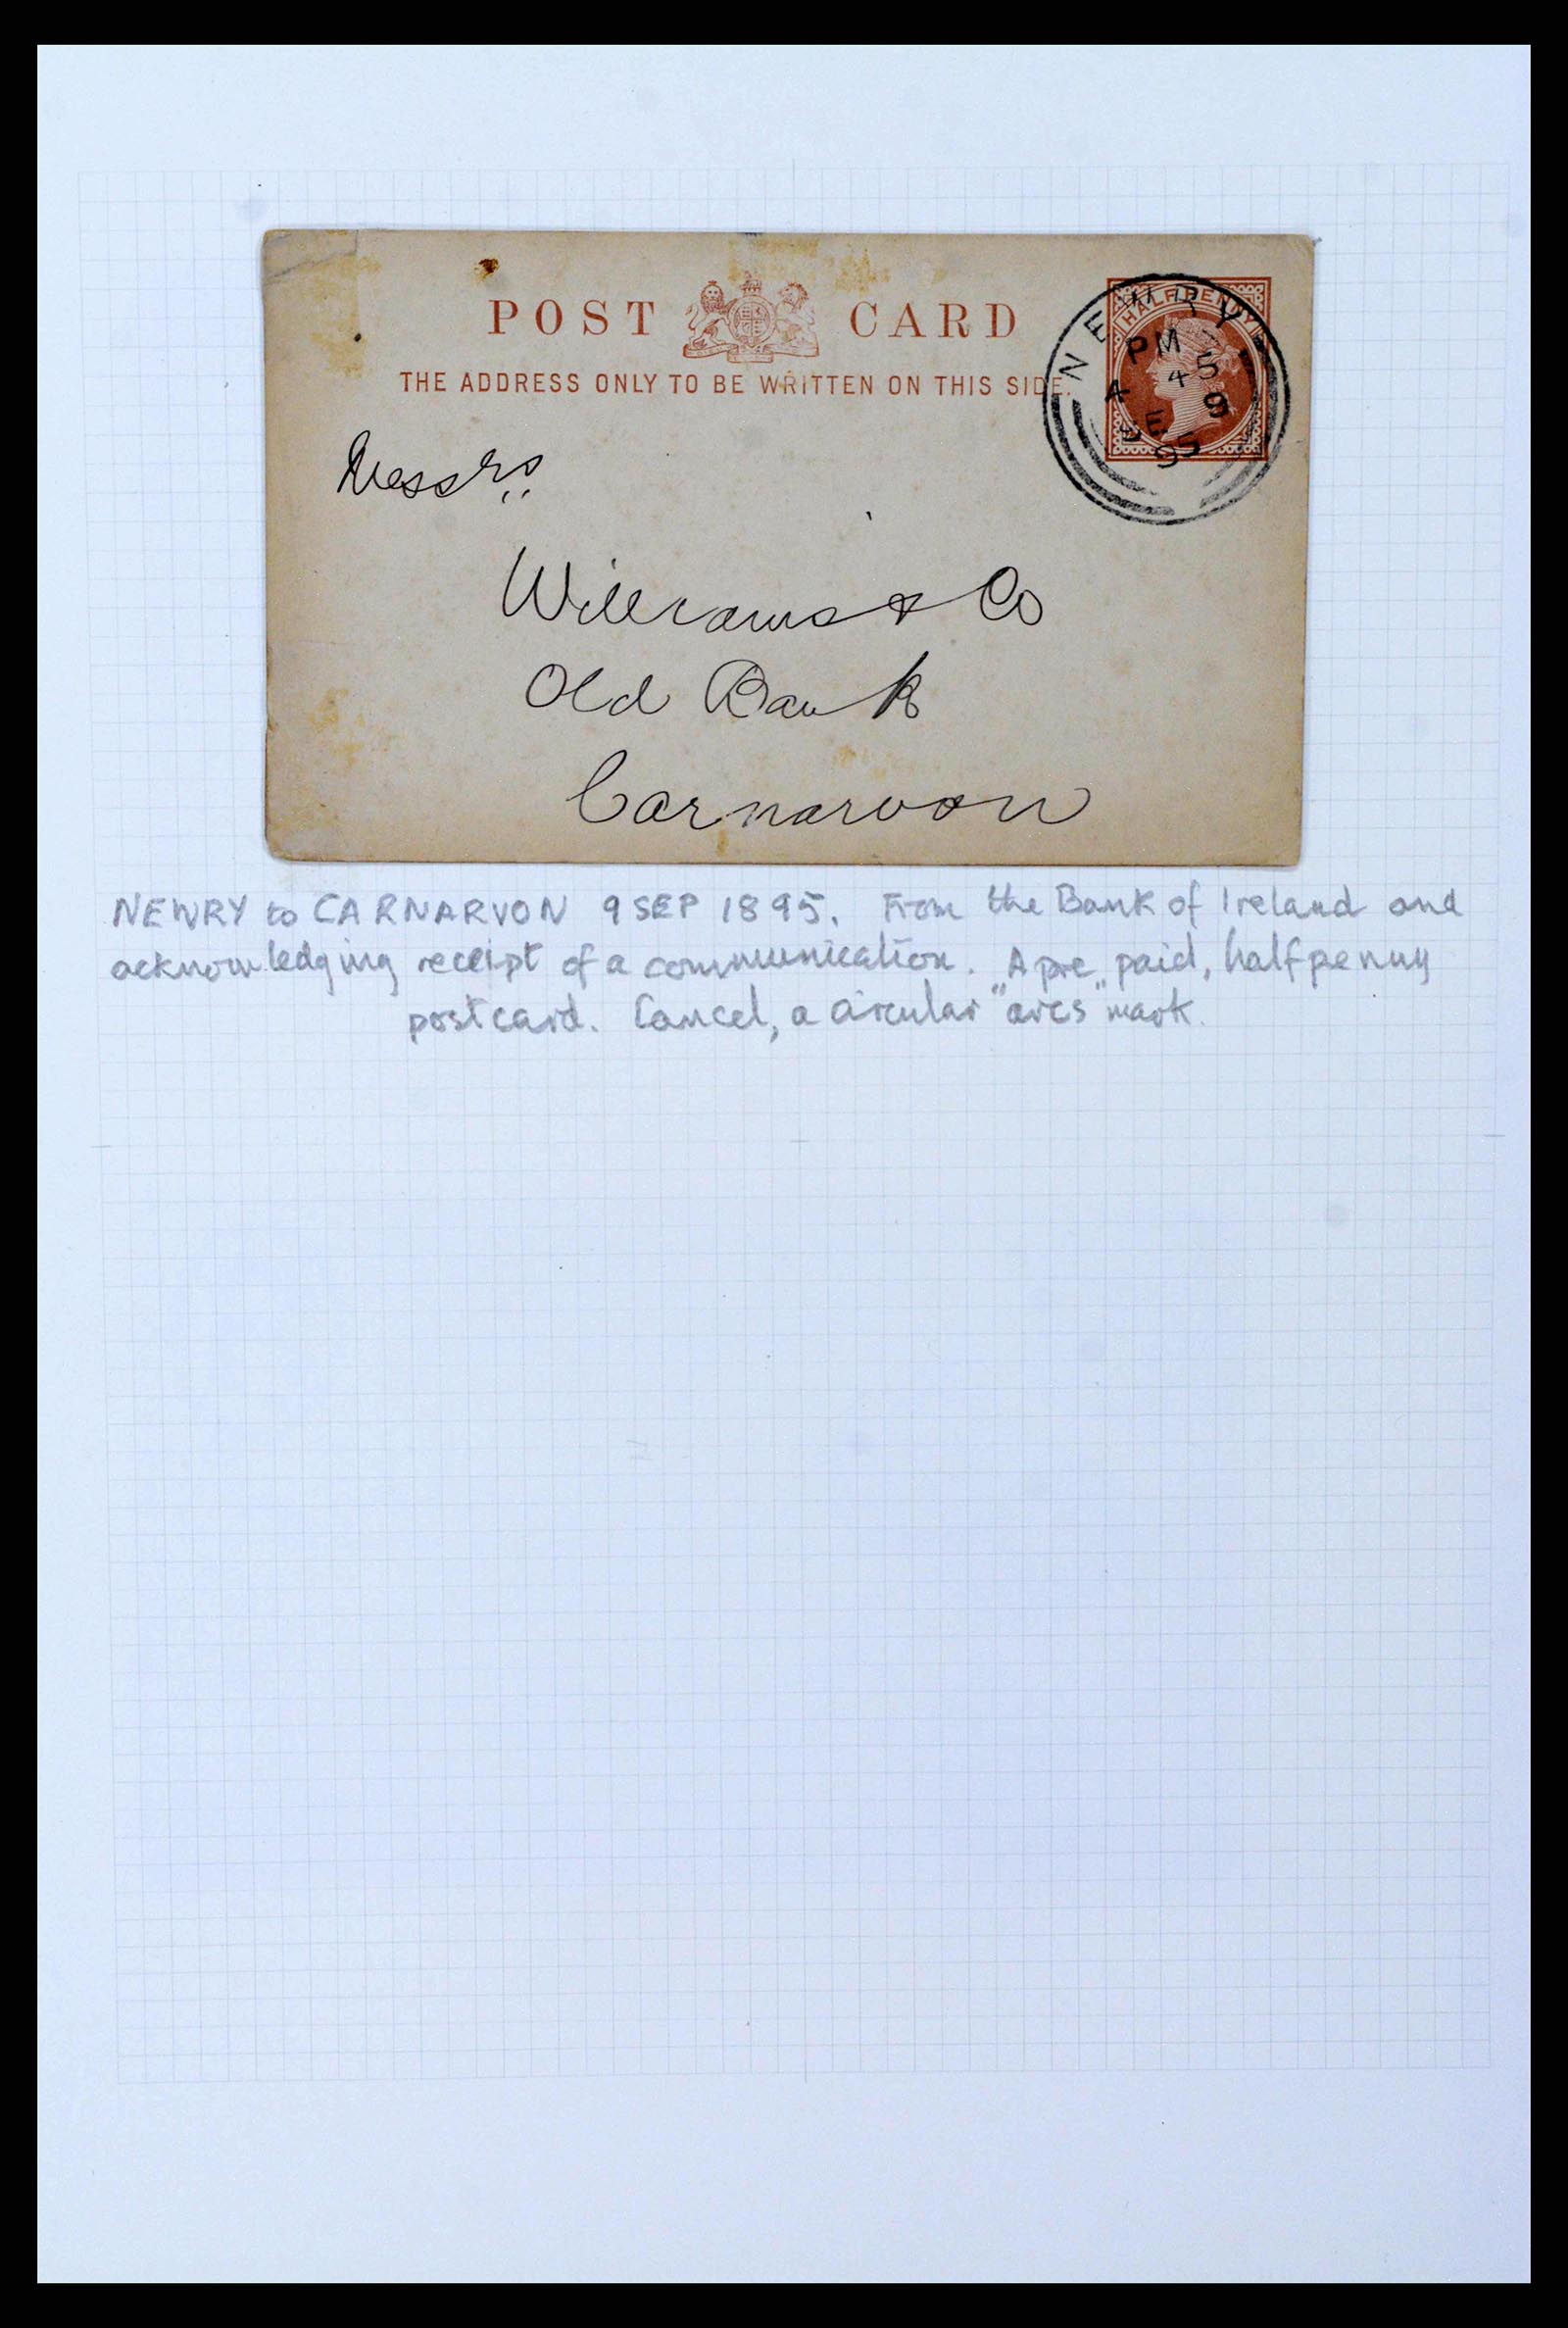 POST CARD
THE ADDRESS ONLY TO BE WRITTEN ON THIS SIDE.
HALFPENNY
NEWRY
PM
4 45
SE 9
95
Messrs
Williams & Co
Old Bank
Carnarvon
NEWRY to CARNARVON 9 SEP 1895. From the Bank of Ireland and
acknowledging receipt of a communication. A pre paid, halfpenny
postcard. Cancel, a circular "arcs" mark.